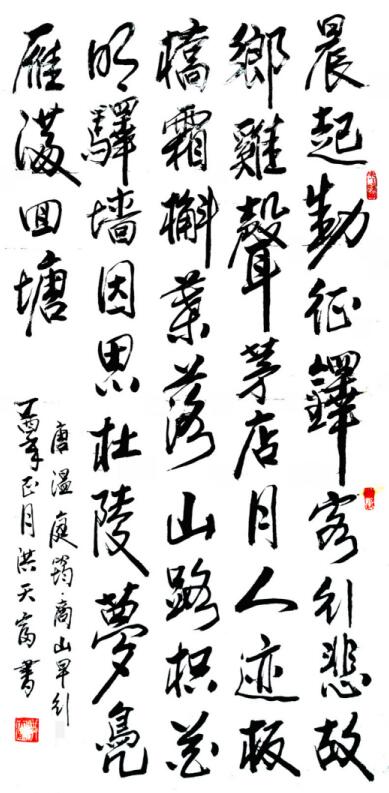 晨起動征鐸客行悲故
鄉雞聲茅店月人迹板
橋霜槲葉落山路枳花
明驛墻因思杜陵夢鳧
雁滿回塘
唐温庭筠商山早行
丁酉年正月洪天富書